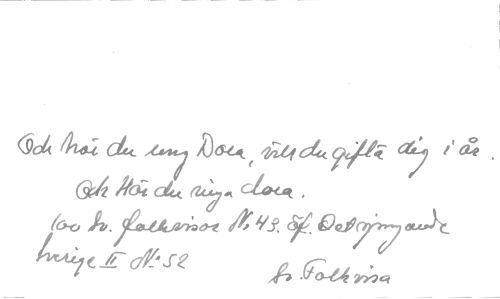 Och hör du ung Dora, vill du gifta dig i år.
Och Hör du unga dora.
100 Sv. folkvisor No 49. Jf. Det sjungande
Sverige II No 52
Sv. Folkvisa